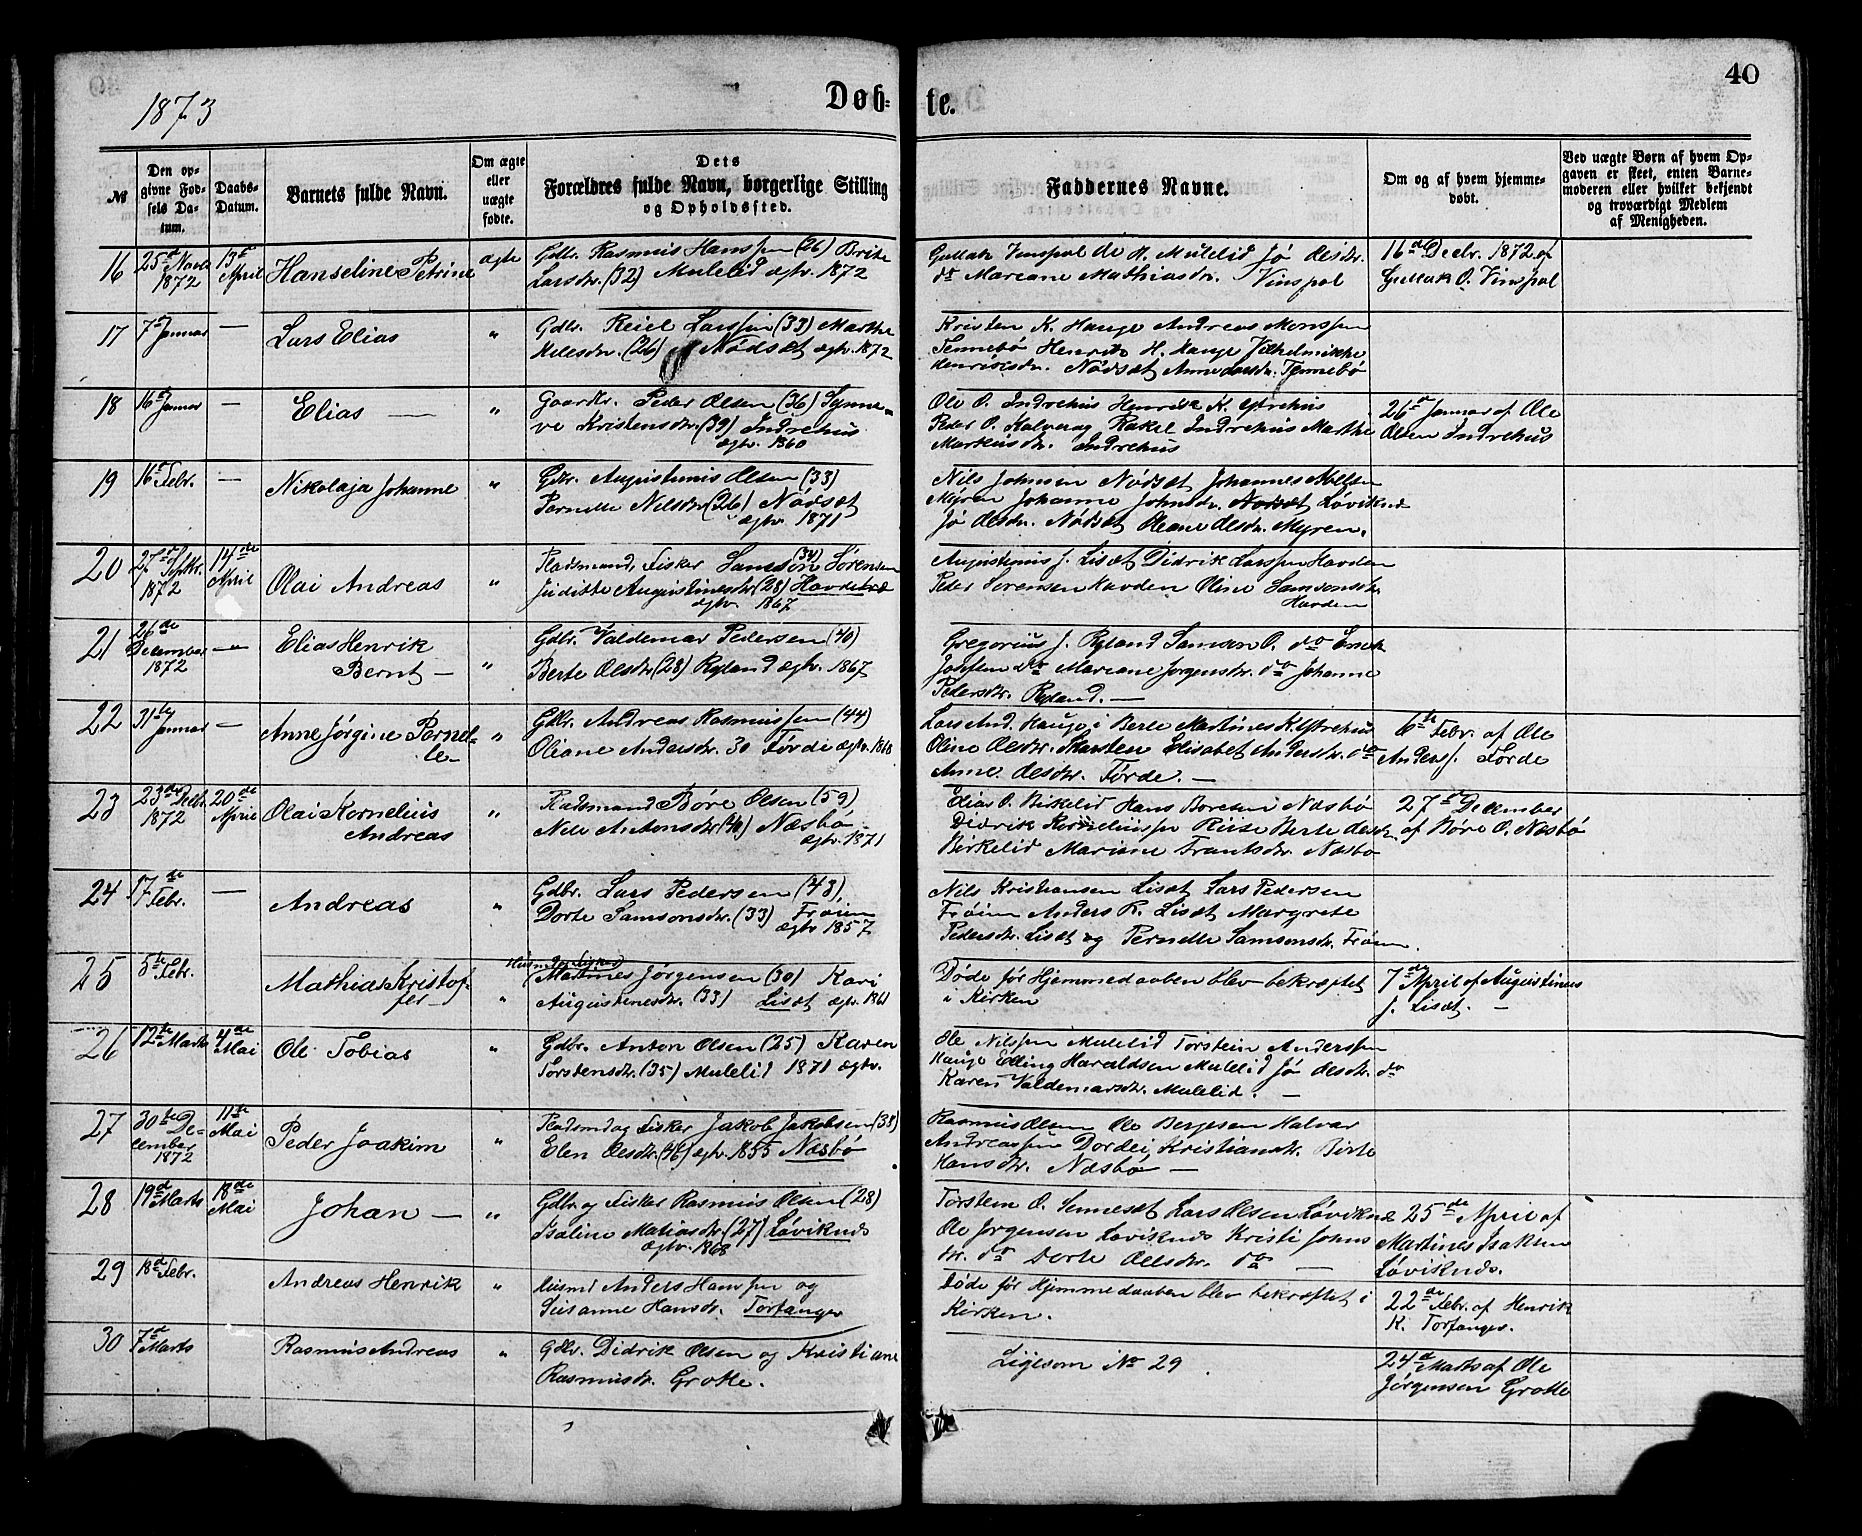 1873
Døb-
te.
40
№
Den op-
givne Fød-
sels Da-
tum.
Daabs-
Datum.
Barnets fulde Navn.
Om ægte
eller
uægte
fødte.
Dets
Forældres fulde Navn, borgerlige Stilling
og Opholdssted.
Faddernes Navne.
Om og af hvem hjemme-
døbt.
Ved uægte Børn af hvem Op-
gaven er skeet, enten Barne-
moderen eller hvilket bekjendt
og troværdigt Medlem
af Menigheden.
16
25de Novbr
1872
13de
April
Hanseline Petrine
ægte
Gdbr. Rasmus Hanssen (26) Brite
Larsdtr. (32) Mulelid ægtv. 1872
Gullak Vinspol Ole H. Mulelid Jø Olsdtr.
do Mariane Mathiasdtr. Vinspol
16de Decbr. 1872 af
Gullak O. Vinspol
17
7de Januar
—
Lars Elias
"
Gdbr. Reiel Larssen (33) Marthe
Nilsdtr. (26) Nødset ægtv. 1872
Kristen K. Hauge Andreas Monssen
Tennebø Henrik H. Hauge Vilhelmikke
Henriksdtr. Nødset Anne Larsdtr. Tennebø
18
16de Januar
—
Elias —
"
Gaardbr. Peder Olsen (36) Synne-
ve Kristensdtr. (39) Indrehus
ægtv. 1860
Ole O. Indrehus Henrik K. Ytrehus
Peder O. Kalvaag Rakel Indrehus Marthe
Markusdtr. Indrehus
26de Januar af Ole
Olsen Indrehus
19
16de Febr.
—
Nikolaja Johanne
"
Gdbr. Augustinus Olsen (33)
Pernelle Nilsdtr. (26) Nødset
ægtv. 1871
Nils Johnsen Nødset Johannes
Myren Johanne Johnsdtr. Nødset Løviknes
Jø Olsdtr. Nødset Oleane Olsdtr. Myren.
20
27de Septbr.
1872
14de
April
Olai Andreas
"
(34)
Pladsmand, Fisker Samson Sørensen
Juditte Augustinesdtr (28)
ægtv. 1867
Augustinus J. Liset Didrik Larssen Havden
Peder Sørensen Havden Oline Samsonsdtr.
Havden
21
26de
December
1872
—
Elias Henrik
Bernt —
"
Gdbr. Valdemar Pedersen (40)
Berte Olsdtr. (28) Ryland ægtv. 1867
Gregorius J. Ryland Samson O. do
Josefsen do Mariane Jørgensdtr. do Johanne
Pedersdtr. Ryland. —
22
31te
Januar
—
Anne Jørgine Pernel-
le —
"
Gdbr. Andreas Rasmussen (44)
Oliane Andersdtr. 30 Førde ægtv. 1860
Lars And. Hauge i Berle Martines K. Ytrehus
Oline Olsdtr. Elisabet Andersdtr. do
Anne Olsdtr. Førde. —
6te Febr. af Ole
Anders. Førde
23
23de Decbr.
1872
20de
April
Olai Kornelius
Andreas
"
Pladsmand Børe Olsen (59)
Nele Antonsdtr (40) Næsbø
ægtv. 1871
Elias O. Birkelid Hans Boresen Næsbø
Didrik Korneliussen Riise Berte Olsdtr.
Birkelid Mariane Frantsdtr. Næsbø
27de December
af Børe O. Næsbø
24
17de
Febr.
—
Andreas
"
Gdbr. Lars Pedersen (43),
Dorte Samsonsdtr. (33) Frøien
ægtv 1857
Nils Kristiansen Liset Lars Pedersen
Frøien Anders R. Liset Margrete
Pedersdtr. Liset og Pernelle Samsonsdtr. Frøien.
25
5te Febr.
Mathias Kristof-
fer —
"
Husmd og Fisker
Martines Jørgensen (30) Kari
Augustinesdtr. (33) Liset ægtv. 1861
Døde før Hjemmedaaben blev bekræftet
i Kirken
7de April af Augustinus
J. Liset. —
26
12te Marts
4de
Mai
Ole Tobias
"
Gdbr. Anton Olsen (25) Karen
Torstensdtr. (35) Mulelid 1871 ægtv.
Ole Nilssen Mulelid Torstein Anderssen
Hauge Elling Haraldsen Mulelid Jø Olsdtr. do
Karen Valdemarsdtr. Mulelid. —
27
30te De-
cember
1872
11te
Mai
Peder Joakim
"
Pladsmd og Fisker Jakob Jakobsen (38)
Elen Olsdtr. (46) ægtv. 1855 Næsbø
Rasmus Olsen Ole Børgesen Halvar
Andreassen Dordei Kristiansdtr. Birte
Hansdtr. Næsbø —
28
19de Marts
18de
Mai
Johan —
"
Gdbr. og Fisker Rasmus Olsen (28)
Isaline Matiasdtr (27) Løviknes
ægtv. 1868
Torstein O. Sennesæt Lars Olsen Løviknes
Ole Jørgensen Løviknes Kristi Johns-
dtr. do Dorte Olsdtr. do —
25de April af
Martines Isaksen
Løviknes.
29
18de Febr.
Andreas Henrik
"
Husmd Anders Hanssen og
Susanne Hansdtr. Torfanger
Døde før Hjemmedaaben blev bekræftet i
Kirken.
22de Febr. af Henrik
K. Torfanger.
30
7de
Marts
Rasmus Andreas
"
Gdbr. Didrik Olsen og Kristiane
Rasmusdtr. Grotle.
Ligesom No 29
24de Marts af Ole
Jørgensen Grotle